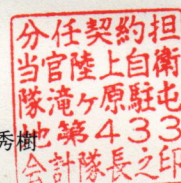 秀樹
分任契約担
当官陸上自衛
隊滝ヶ原駐屯
地第433
会計隊長之印